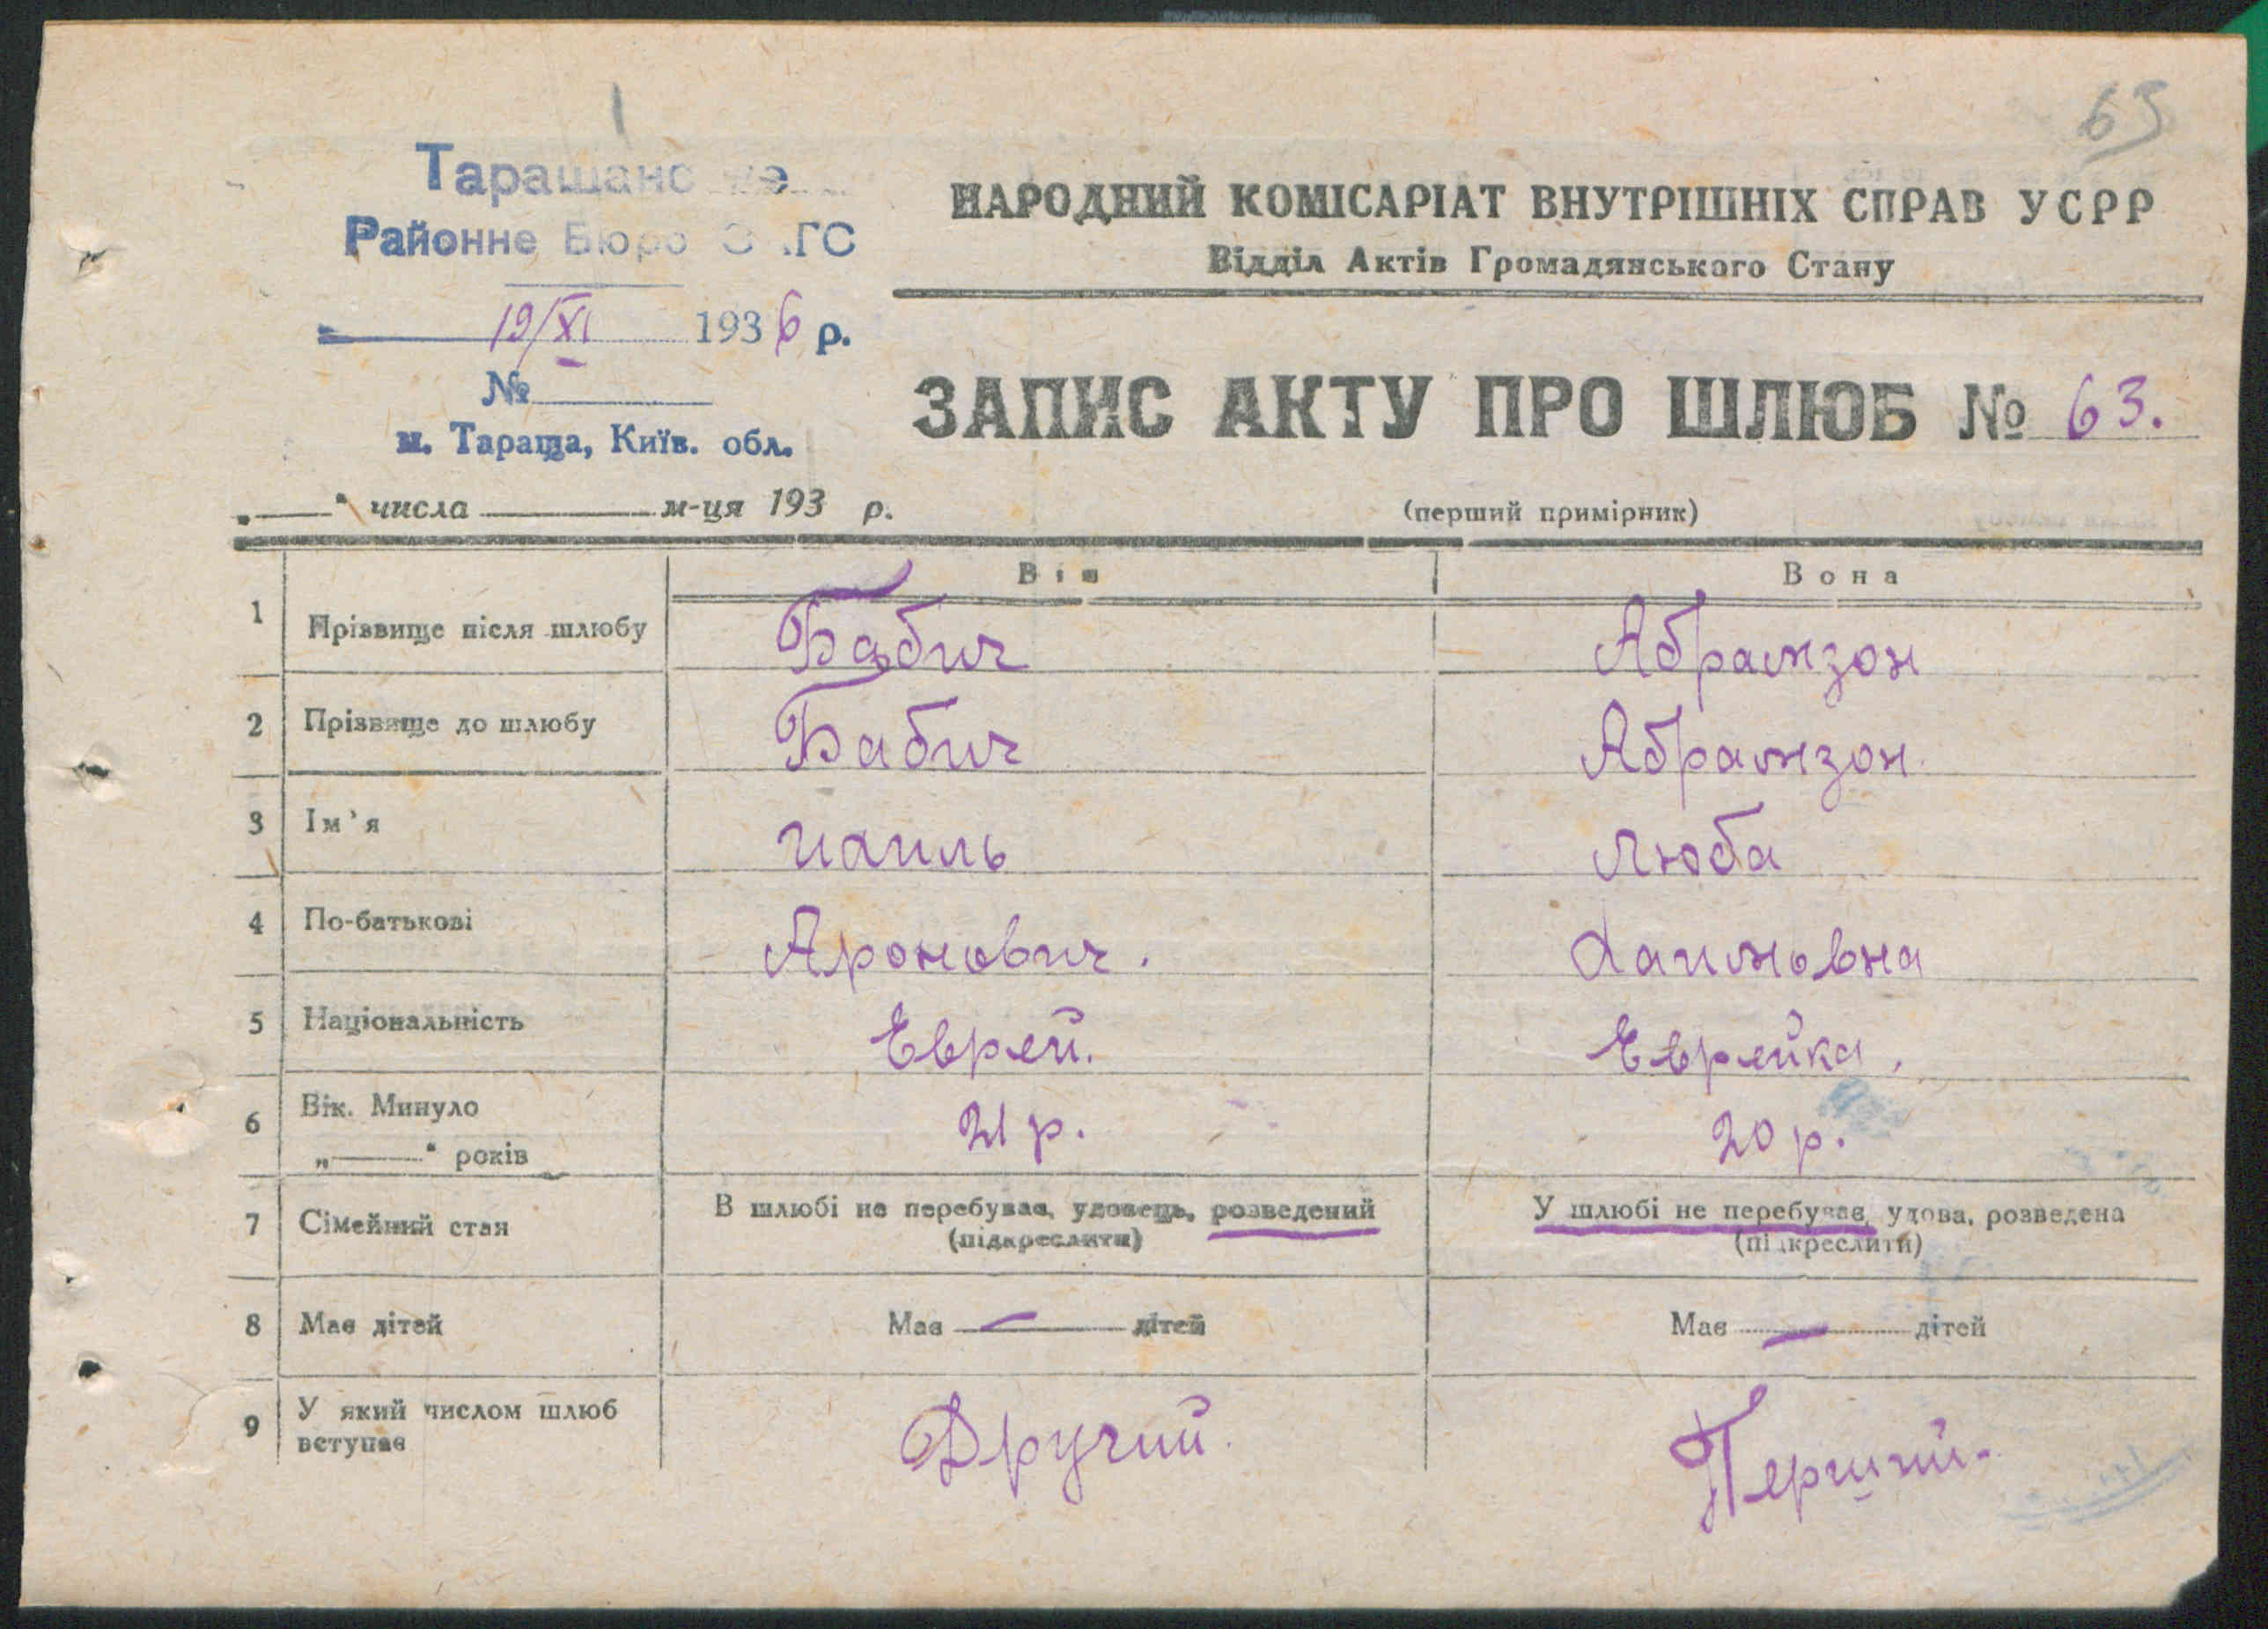 65
Таращанське
Районне Бюро ЗАГС
19/XI 1936 р.
№
м. Тараща, Київ. обл.
НАРОДНИЙ КОМІСАРІАТ ВНУТРІШНІХ СПРАВ УСРР
Відділ Актів Громадянського Стану
ЗАПИС АКТУ ПРО ШЛЮБ № 63.
„ “ числа м-ця 193 р.
(перший примірник)
Він Вона
1 Прізвище після шлюбу Бабич Абрамзон
2 Прізвище до шлюбу Бабич Абрамзон.
3 Ім'я Люба
4 По-батькові Аронович. Хаимовна
5 Національність Еврей. Еврейка.
6 Вік. Минуло
„ “ років 21 р. 20 р.
7 Сімейний стан В шлюбі не перебуває, удовець, розведений
(підкреслити)
У шлюбі не перебуває, удова, розведена
(підкреслити)
8 Має дітей Має — дітей Має — дітей
9 У який числом шлюб
вступає Другий. Перший.